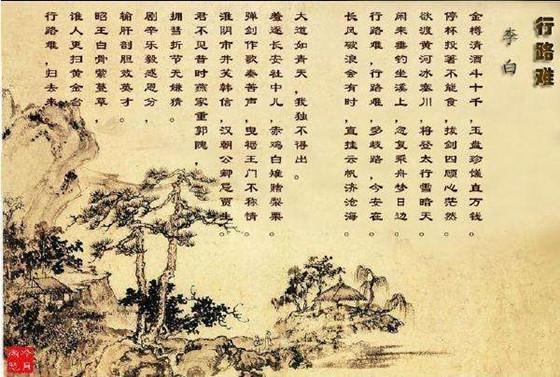 行路难
李白
金樽清酒斗十千，玉盘珍馐直万钱。
停杯投箸不能食，拔剑四顾心茫然。
欲渡黄河冰塞川，将登太行雪暗天。
闲来垂钓坐溪上，忽复乘舟梦日边。
行路难，行路难，多歧路，今安在。
长风破浪会有时，直挂云帆济沧海。
大道如青天，我独不得出。
羞逐长安社中儿，赤鸡白雉赌梨栗。
弹剑作歌奏苦声，曳裾王门不称情。
淮阴市井笑韩信，汉朝公卿忌贾生。
君不见昔时燕家重郭隗，
拥彗折节无嫌猜。
剧辛乐毅感恩分，
输肝剖胆效英才。
昭王白骨萦蔓草，
谁人更扫黄金台。
行路难，归去来。